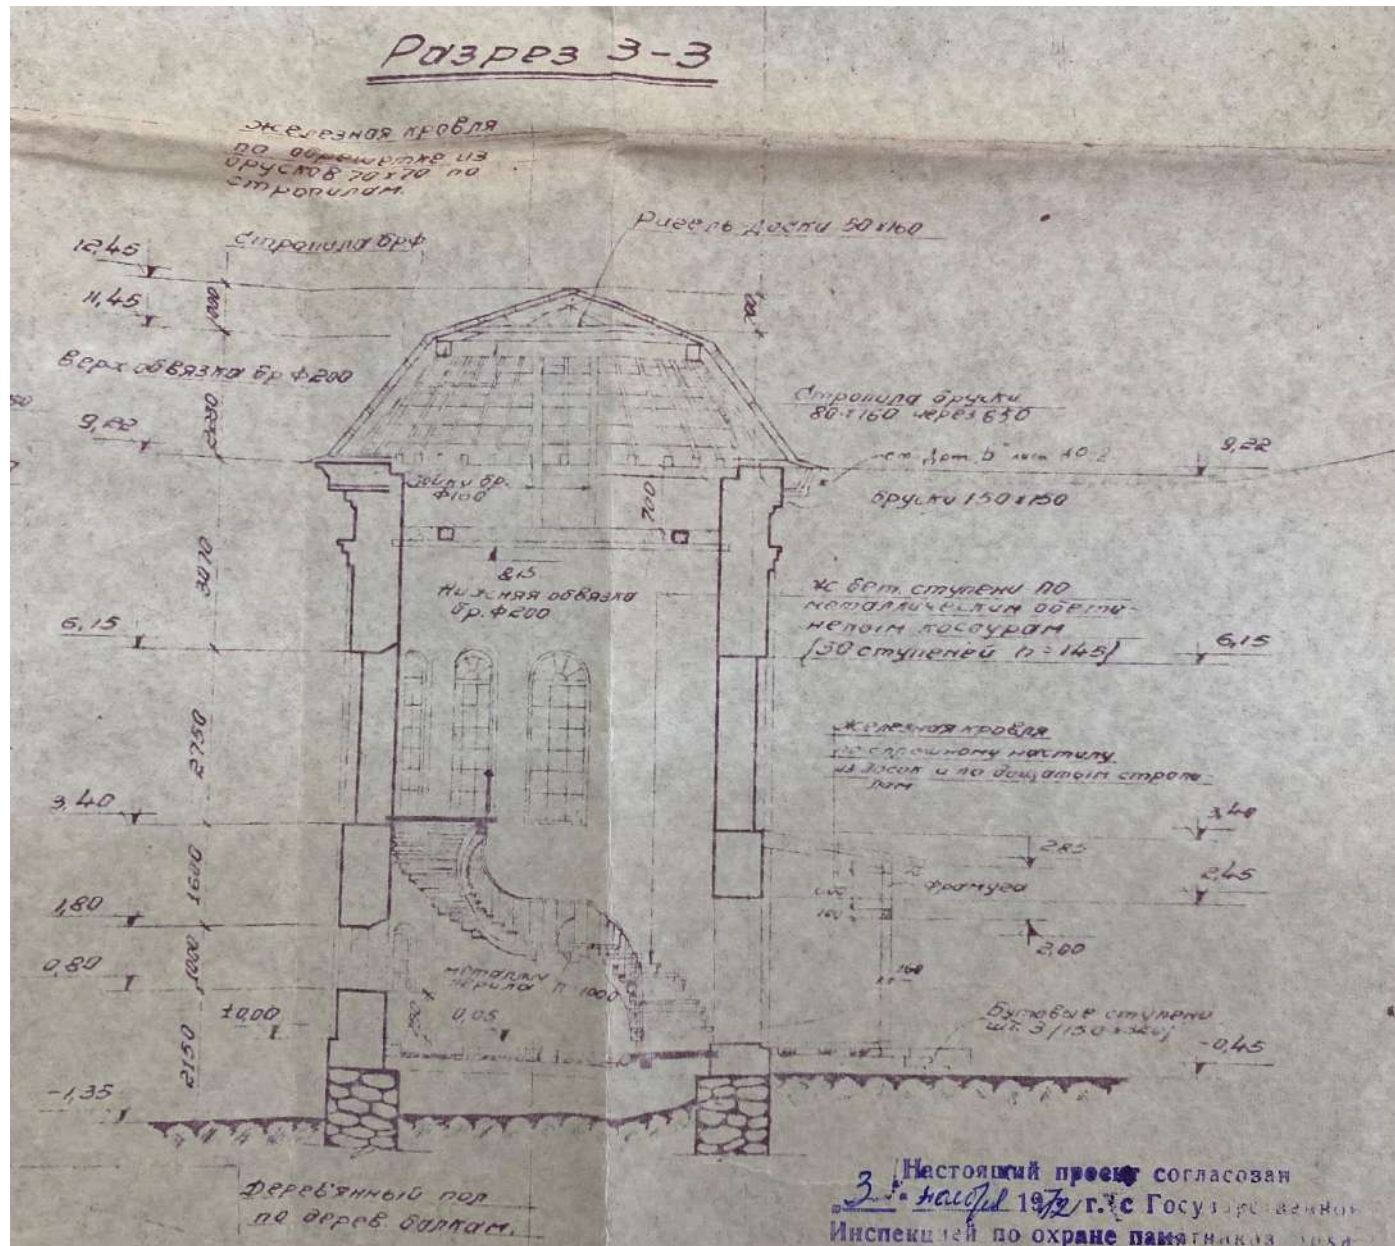 Разрез 3-3
Железная кровля
по обрешетке из
брусков 70х70 по
стропилам.
Ригель доски 50х160
Стропила брф
12,45
11,45
1000
Верх обвязка бр ф200
Стропила бруски
80х160 через 650
9,22
2230
9,22
Стойки бр.
ф100
700
бруски 150х150
3070
8,15
Нижняя обвязка
бр. ф200
ж бет. ступени по
металлическим обето-
ненным косоурам
(30 ступеней h=145)
6,15
6,15
2750
Железная кровля
по сплошному настилу
из досок и по дощатым стропи-
лам
3,40
3,40
2.85
1600
фрамуга
2,45
160
1,80
2,00
1000
0,80
160
перила h=1000
±0,00
0,05
Бутовые ступени
шт. 3
-0,45
2150
-1,35
Деревянный пол
по дерев. балкам.
Настоящий проект согласован
3 ноября 1972 г. с Государственной
Инспекцией по охране памятников